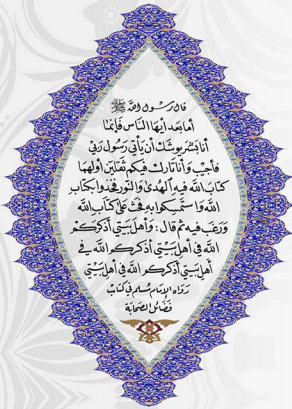 قال رسول الله ﷺ
أما بعد أيها الناس فإنما
أنا بشر يوشك أن يأتي رسول ربي
فأجيب وأنا تارك فيكم ثقلين أولهما
كتاب الله فيه الهدى والنور فخذوا بكتاب
الله واستمسكوا به فحث على كتاب الله
ورغب فيه ثم قال: وأهل بيتي أذكركم
الله في أهل بيتي أذكركم الله في
أهل بيتي أذكركم الله في أهل بيتي
رواه الإمام مسلم في كتاب
فضائل الصحابة